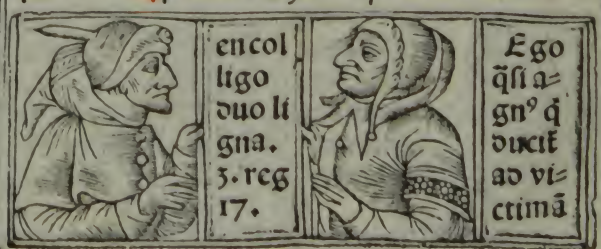 en col
ligo
duo li
gna.
3. reg
17.
Ego
q̄si a=
gnꝰ q̄
ducit̄
ad vi=
ctimā